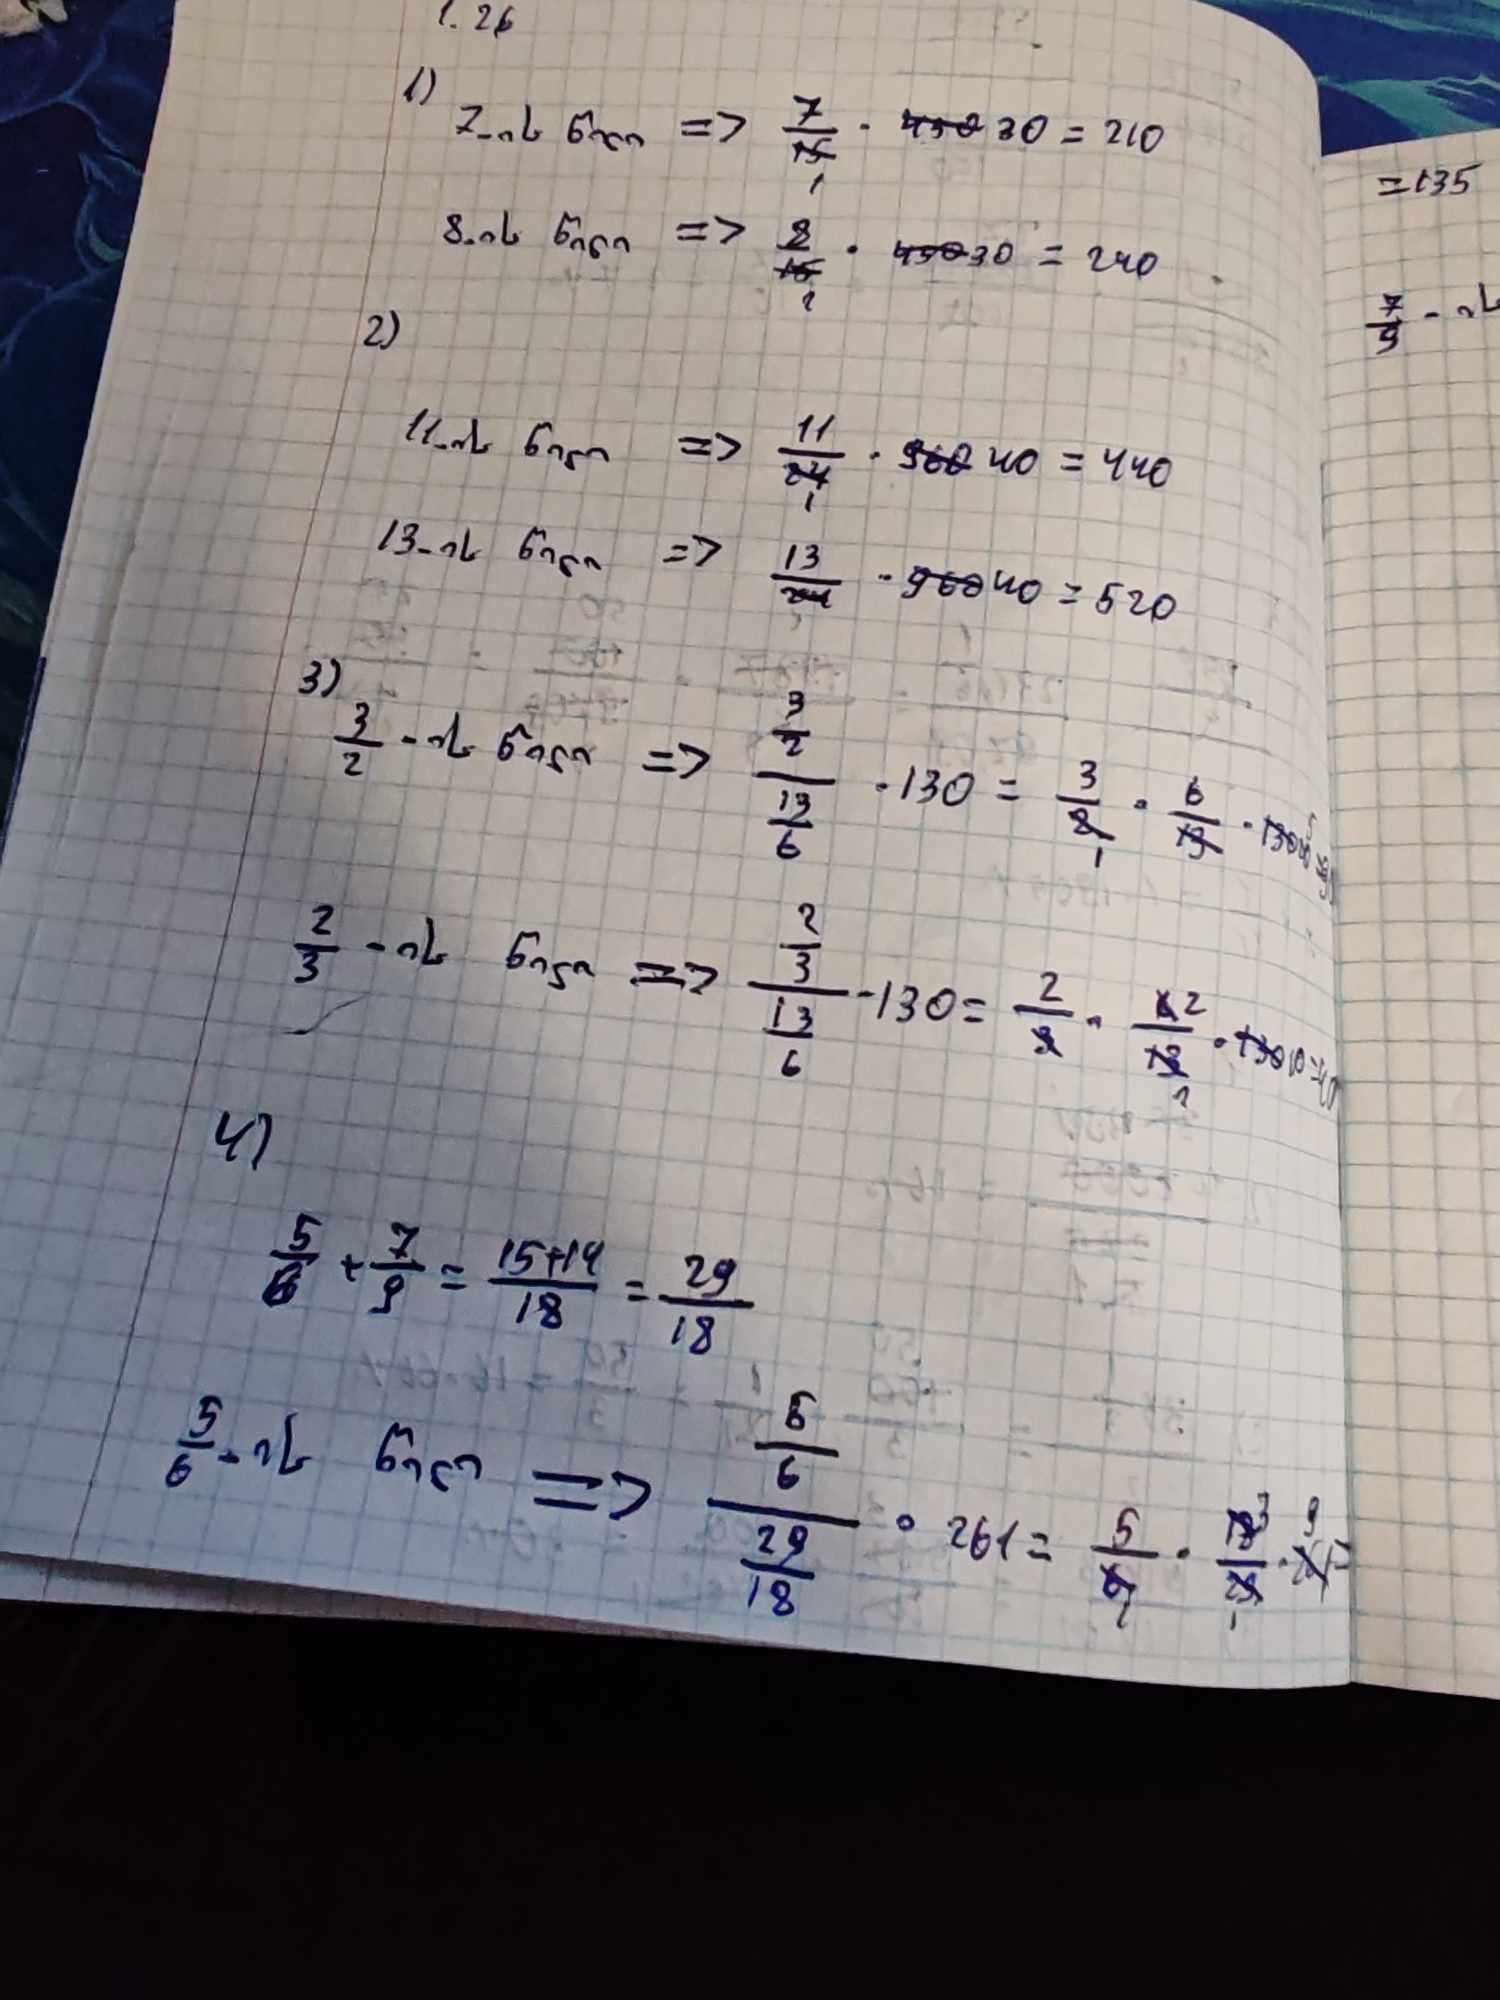 1.26
1)
7-ის წილი => 7/15 · 450 30 = 210
1
8-ის წილი => 8/15 · 450 30 = 240
1
2)
11-ის წილი => 11/24 · 960 40 = 440
1
13-ის წილი => 13/24 · 960 40 = 520
3)
3/2 - ის წილი => 3/2 / 13/6 · 130 = 3/2 · 6/13 · 130
1
2/3 - ის წილი => 2/3 / 13/6 · 130 = 2/3 · 6 2/13 · 130 10 = 40
1
4)
5/6 + 7/9 = 15+14/18 = 29/18
5/6 - ის წილი => 5/6 / 29/18 · 261 = 5/6 · 18 3/29 · 9 =
1 1
=135
7/9 - ის